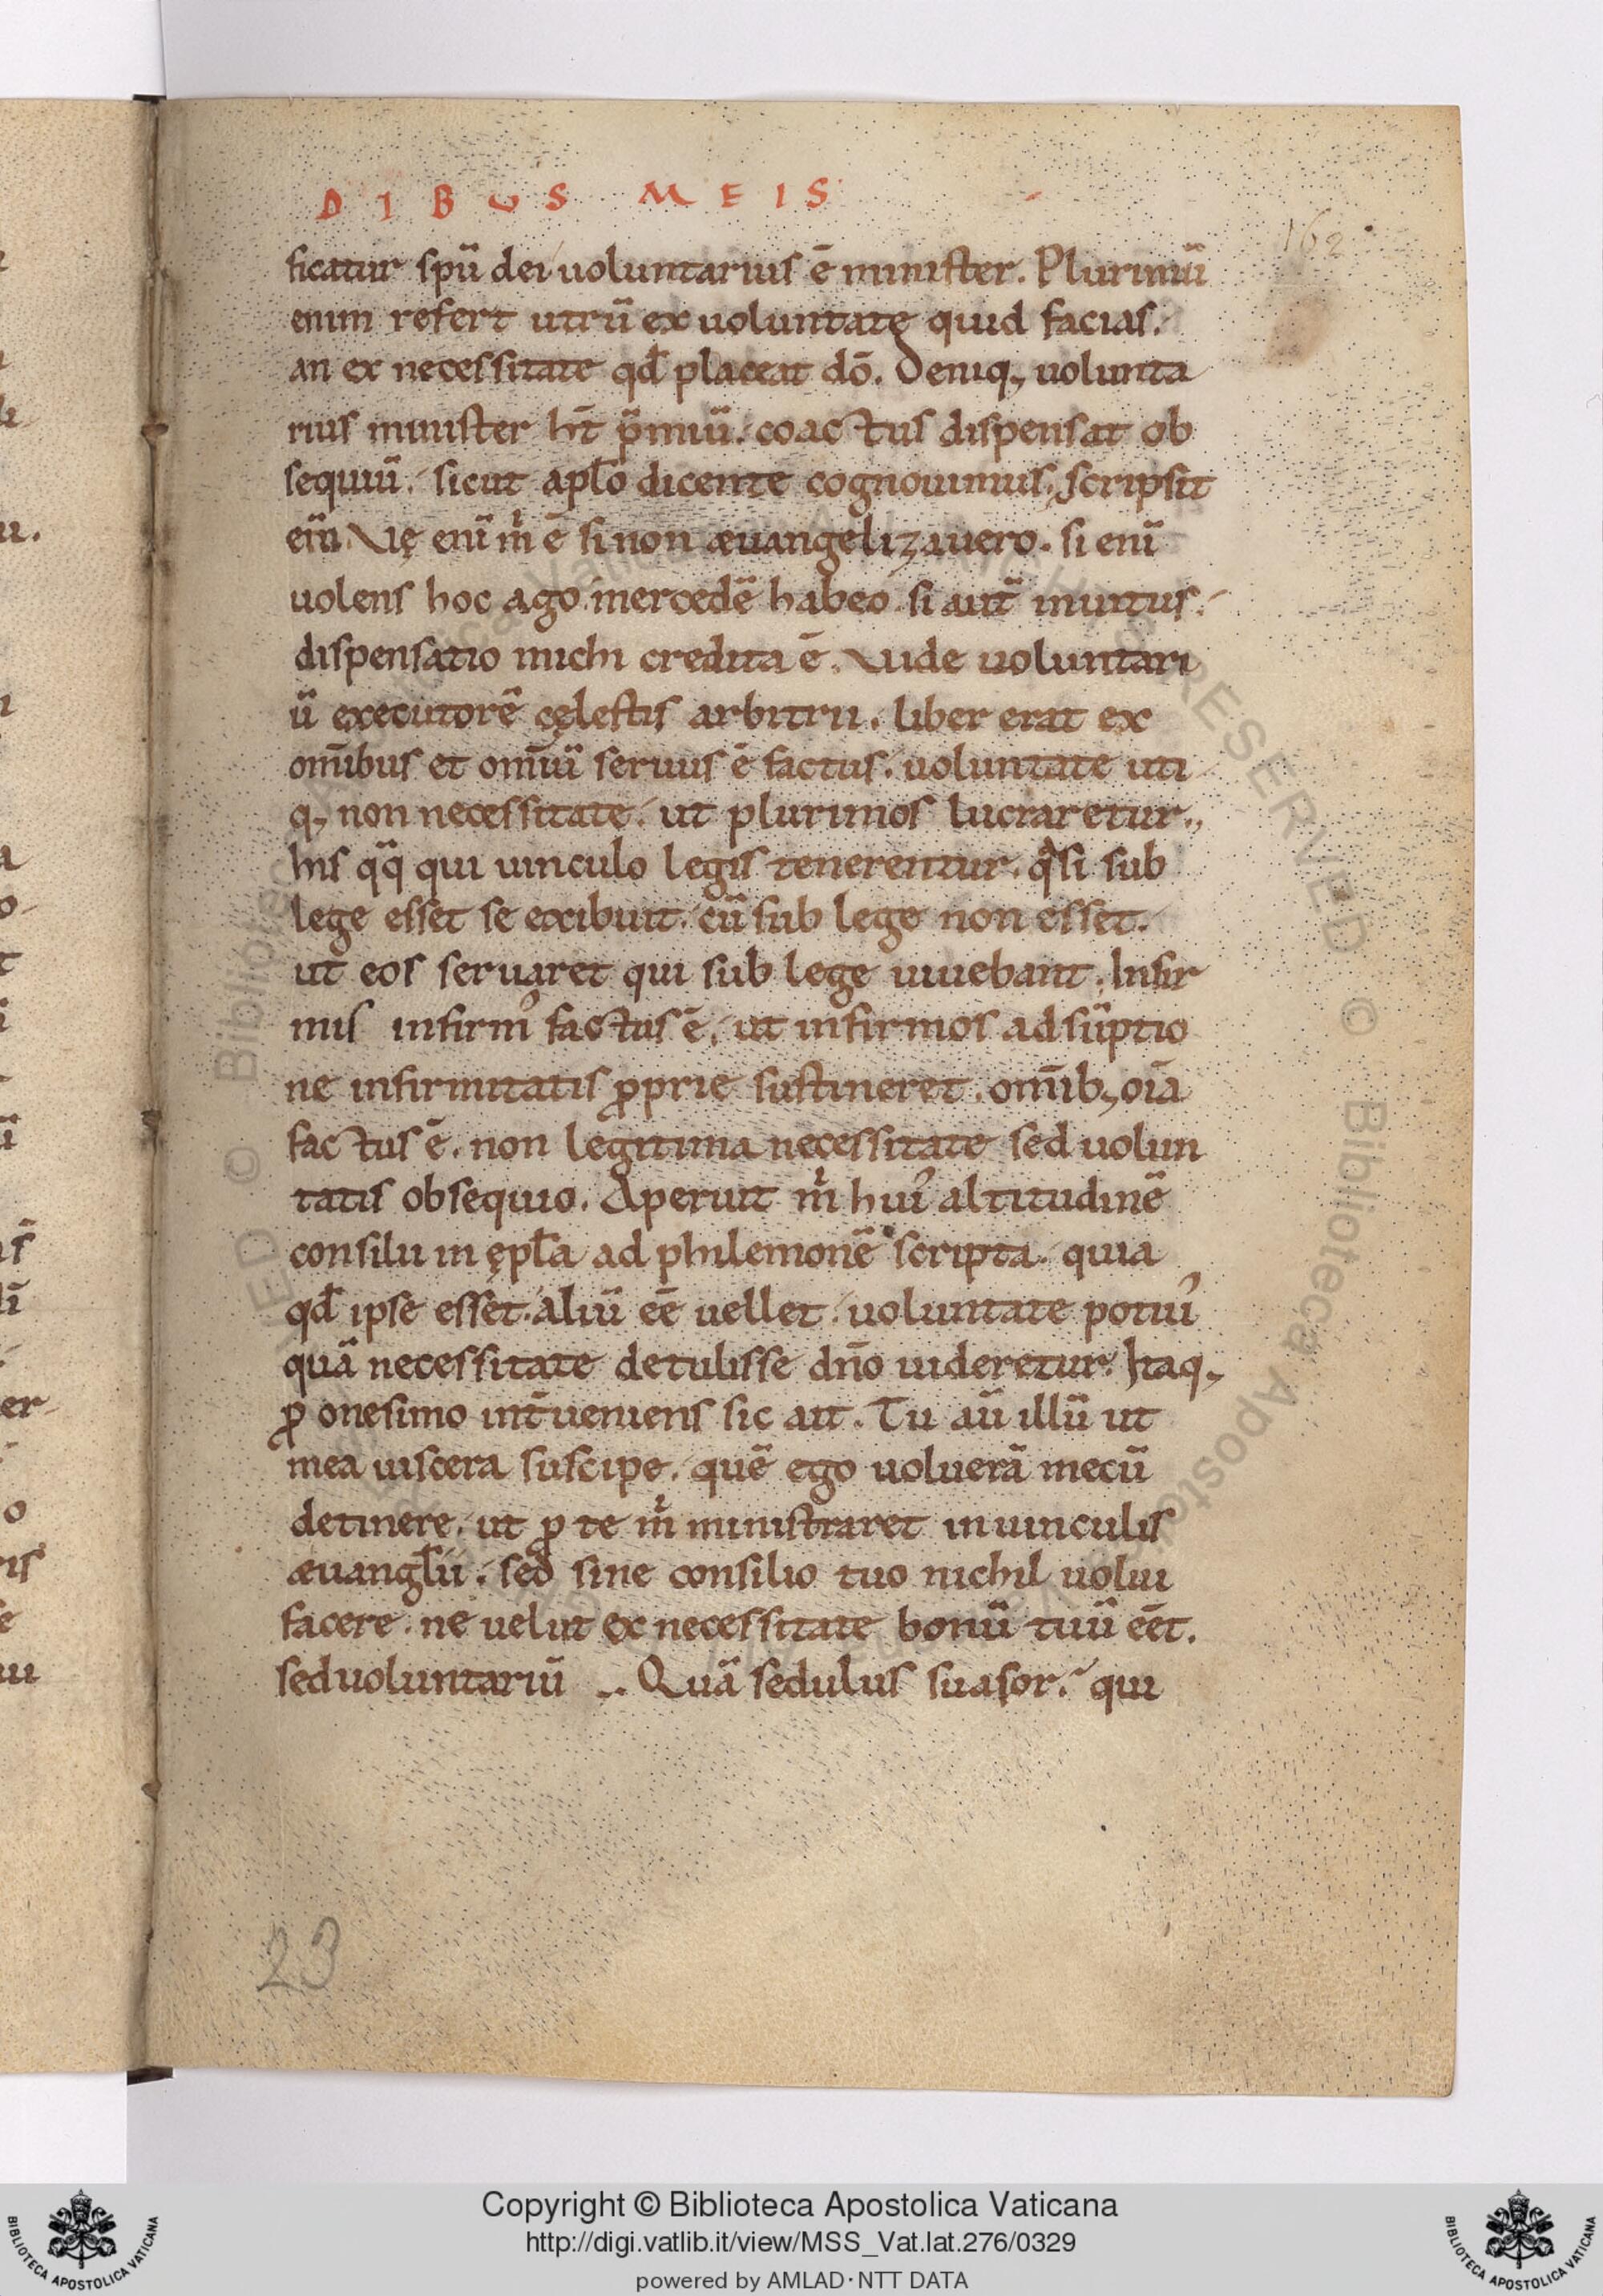 DIBUS MEIS
162
ficatur spū dei uoluntarius ē minister. Plurimū
enim refert utrū ex uoluntate quid facias.
an ex necessitate qđ placeat dō. Deniq; uolunta
rius minister ht̄ p̄miū. coactus dispensat ob
sequiū. sicut apl̄o dicente cognouimus. scripsit
eni̅. Vę enī m̍ ē si non æuangelizauero. si enī
uolens hoc ago mercedē habeo. si aut̄ inuitus.
dispensatio michi credita ē. Vide uoluntari
ū executorē cęlestis arbitrii. liber erat ex
om̄ibus et om̄iū seruus ē factus. uoluntate uti
q; non necessitate. ut plurimos lucraretur.
his qq̄ qui uinculo legis tenerentur. qͣsi sub
lege esset se exibuit. cū sub lege non esset.
ut eos seruaret qui sub lege uiuebant. Infir
mis infirmꝰ factus ē. ut infirmos adsūptio
ne infirmitatis ꝓprie sustineret. om̄ib; oīa
factus ē. non legitima necessitate sed uolun
tatis obsequio. Aperuit m̍ huiꝰ altitudinē
consilii in ępl̄a ad philemonē scripta. quia
qđ ipse esset. aliū eē uellet. uoluntate potiuꝰ
quā necessitate detulisse dn̄o uideretur. Itaq;
ꝓ onesimo int̄ueniens sic ait. Tu aū illū ut
mea uiscera suscipe. quē ego uoluerā mecū
detinere. ut ꝓ te m̍ ministraret in uinculis
æuangl̄ii. sed sine consilio tuo nichil uolui
facere. ne uelut ex necessitate bonū tuū eēt.
sed uoluntariū .. Quā sedulus suasor. qui
23
Copyright © Biblioteca Apostolica Vaticana
http://digi.vatlib.it/view/MSS_Vat.lat.276/0329
powered by AMLAD·NTT DATA
BIBLIOTECA APOSTOLICA VATICANA
BIBLIOTECA APOSTOLICA VATICANA